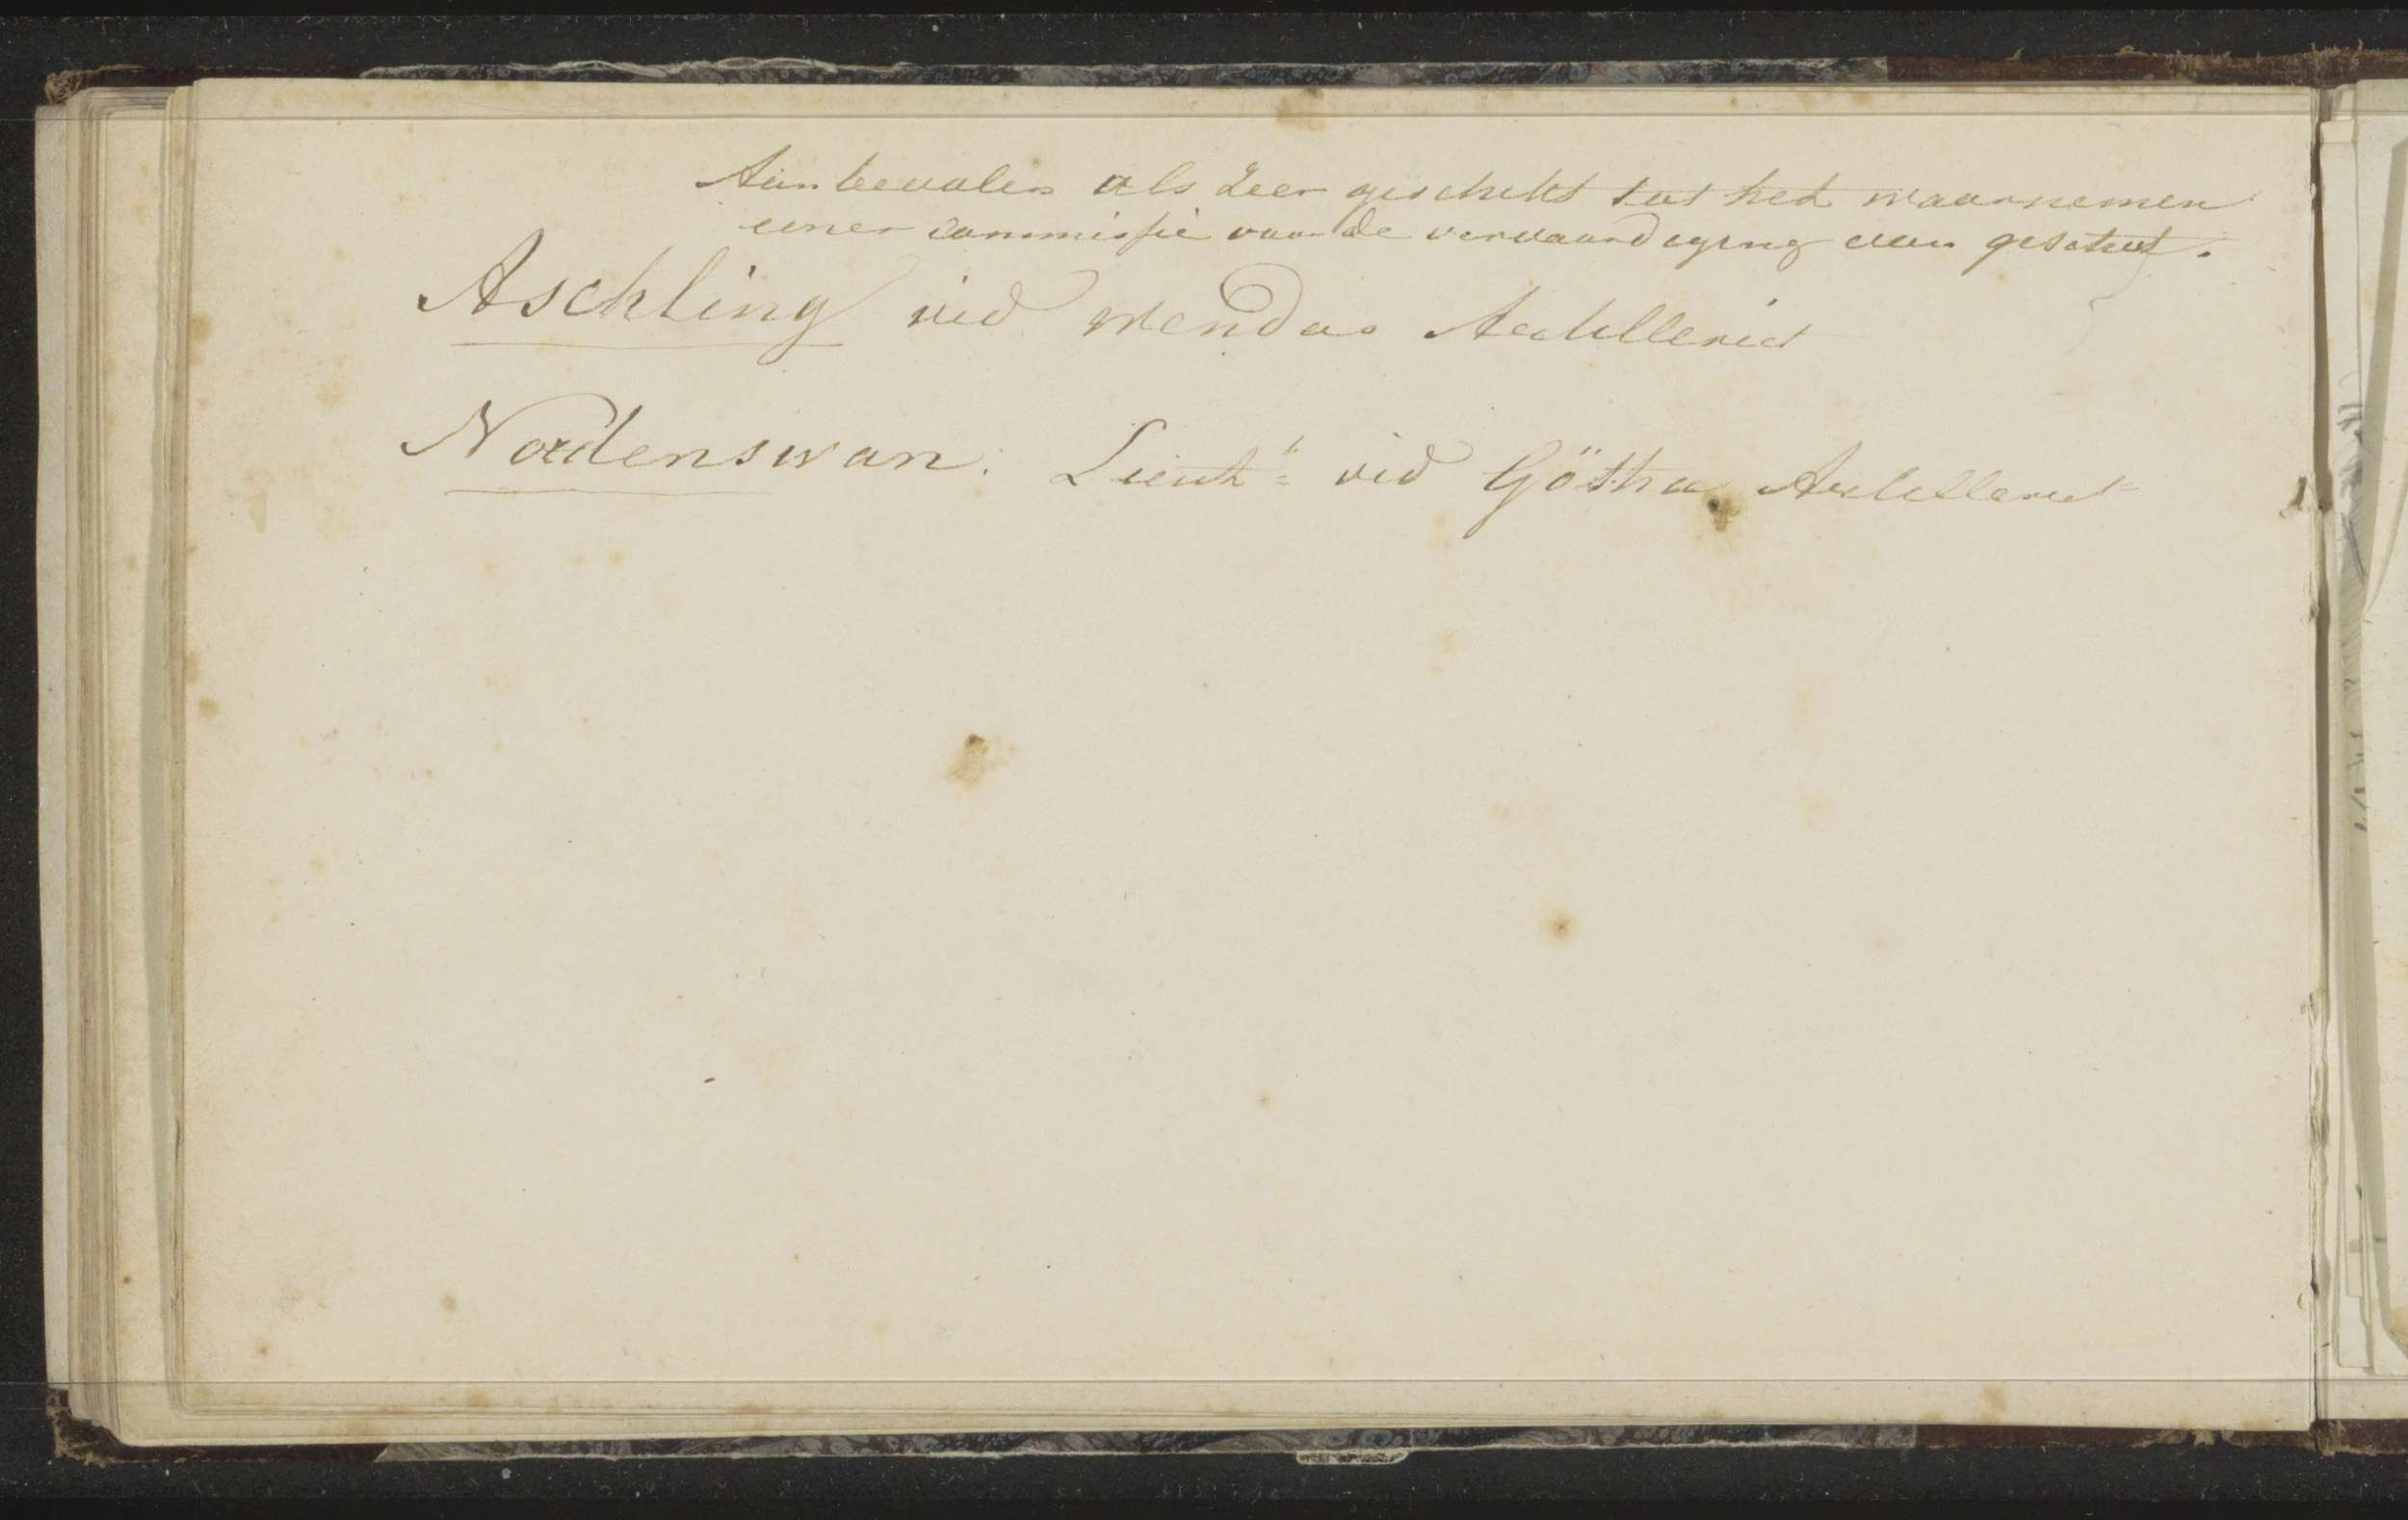 Aanbevolen als zeer geschikt tot het waarnemen
eener commissie voor de vervaardiging van geschut.
Aschling vid Wendas Artilleriet
Nordenswan. Lieut t vid Götha Artilleriet